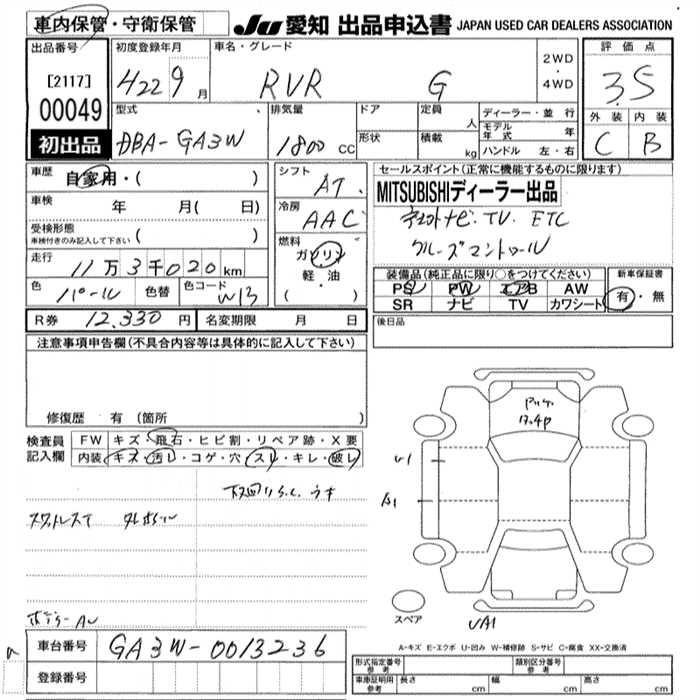 車内保管・守衛保管
JU 愛知 出品申込書 JAPAN USED CAR DEALERS ASSOCIATION
出品番号
[2117]
00049
初出品
初度登録年月
H22 9 月
車名・グレード
RVR G
2WD
・
4WD
評価点
3.5
外装 内装
C B
型式
DBA-GA3W
排気量
1800 CC
ドア
形状
定員
人
積載
kg
ディーラー・並行
モデル年式 年
ハンドル 左・右
車歴
自家用・( )
車検
年 月( 日)
受検形態
車検付きのみ記入して下さい ( )
走行
11万3千020km
色
パール
色替
色コード
W13
シフト
AT
冷房
AAC
燃料
ガソリン
軽・油
( )
セールスポイント(正常に機能するものに限ります)
MITSUBISHIディーラー出品
TV. ETC
クルーズコントロール
装備品(純正品に限り○をつけてください)
PS PW エアB AW
SR ナビ TV カワシート
新車保証書
有・無
R券 12,330 円
名変期限 月 日
後日品
注意事項申告欄(不具合内容等は具体的に記入して下さい)
修復歴 有 (箇所 )
検査員記入欄
FW キズ・飛石・ヒビ割・リペア跡・X要
内装 キズ・汚レ・コゲ・穴・スレ・キレ・破レ
スタットレスT
ボデーAU
車台番号
GA3W-0013236
登録番号
U1
A1
UA1
スペア
A-キズ E-エクボ U-凹み W-補修跡 S-サビ C-腐食 XX-交換済
形式指定番号 参考
類別区分番号 参考
車庫証明用 参考
長さ cm
幅 cm
高さ cm